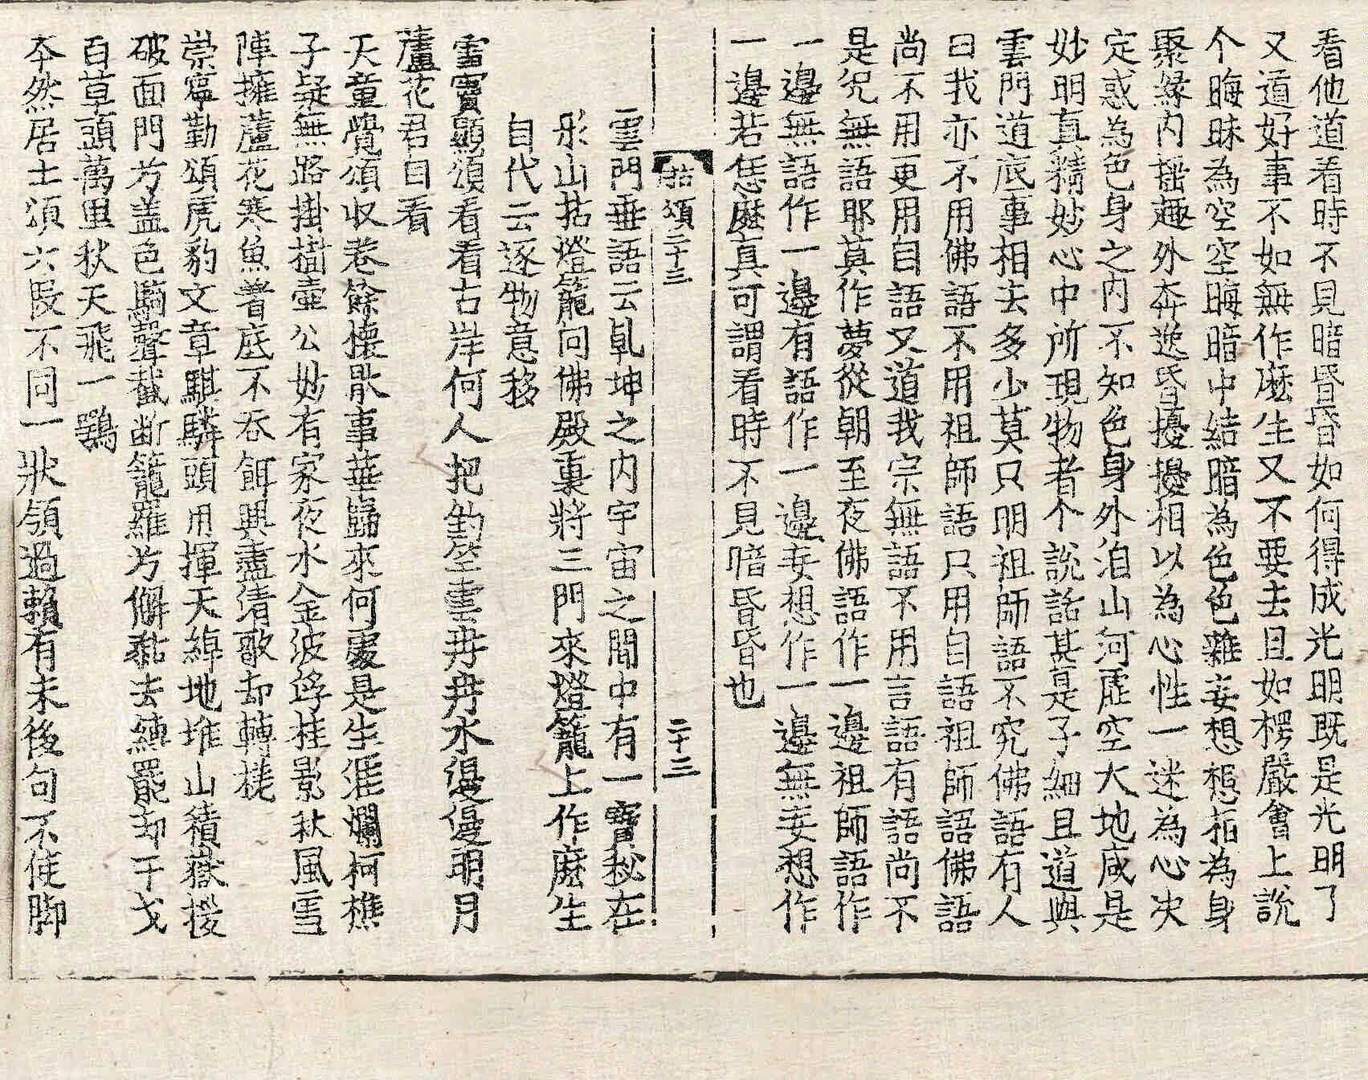 看他道看時不見暗昏昏如何得成光明既是光明了
又道好事不如無作麽生又不要去且如楞嚴會上說
个晦昧為空空晦暗中結暗為色色雜妄想想相為身
聚緣內搖趣外奔逸昏擾擾相以為心性一迷為心決
定惑為色身之內不知色身外洎山河虛空大地咸是
妙明真精妙心中所現物者个說話甚是子細且道與
雲門道底事相去多少莫只明祖師語不究佛語有人
曰我亦不用佛語不用祖師語只用自語祖師語佛語
尚不用更用自語又道我宗無語不用言語有語尚不
是究無語耶莫作夢從朝至夜佛語作一邊祖師語作
一邊無語作一邊有語作一邊妄想作一邊無妄想作
一邊若恁麽真可謂看時不見暗昏昏也
拈頌二十三 二十三
雲門垂語云乹坤之內宇宙之間中有一寶秘在
形山拈燈籠向佛殿裏將三門來燈籠上作麽生
自代云逐物意移
雪竇顯頌看看古岸何人把釣竿雲冉冉水漫漫明月
蘆花君自看
天童覺頌收卷餘懷猒事華歸來何處是生涯爛柯樵
子疑無路掛樹壷公妙有家夜水金波浮桂影秋風雪
陣擁蘆花寒魚着底不吞餌興盡清歌却轉槎
崇寧勤頌虎豹文章騏驎頭角揮天綽地堆山積嶽援
破面門方盖色騎聲截断籠羅方懈黏去縛罷却干戈
百草頭萬里秋天飛一鶚
本然居士頌六段不同一狀領過賴有末後句不使脚